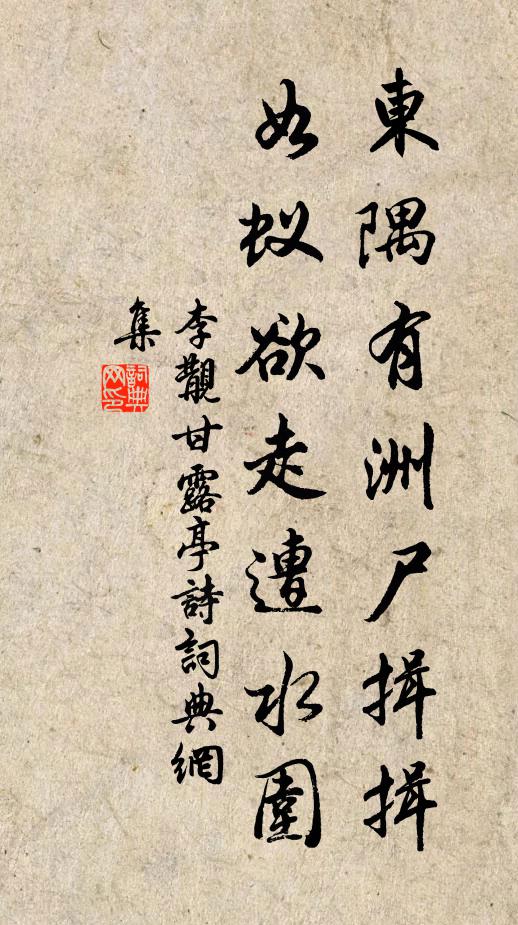 東隅有洲尸揖揖
如蚁欲走遭水圍
李覯甘露亭詩詞典網
集
詞典
网印